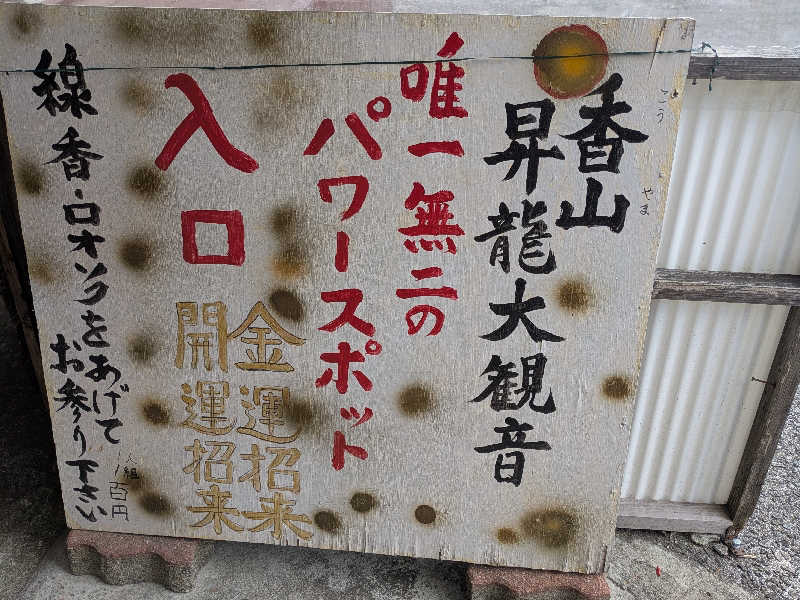 香山
こうやま
昇龍大観音
唯一無二の
パワースポット
入口
金運招来
開運招来
線香・ロオソクをあげて
お参り下さい
一組
百円